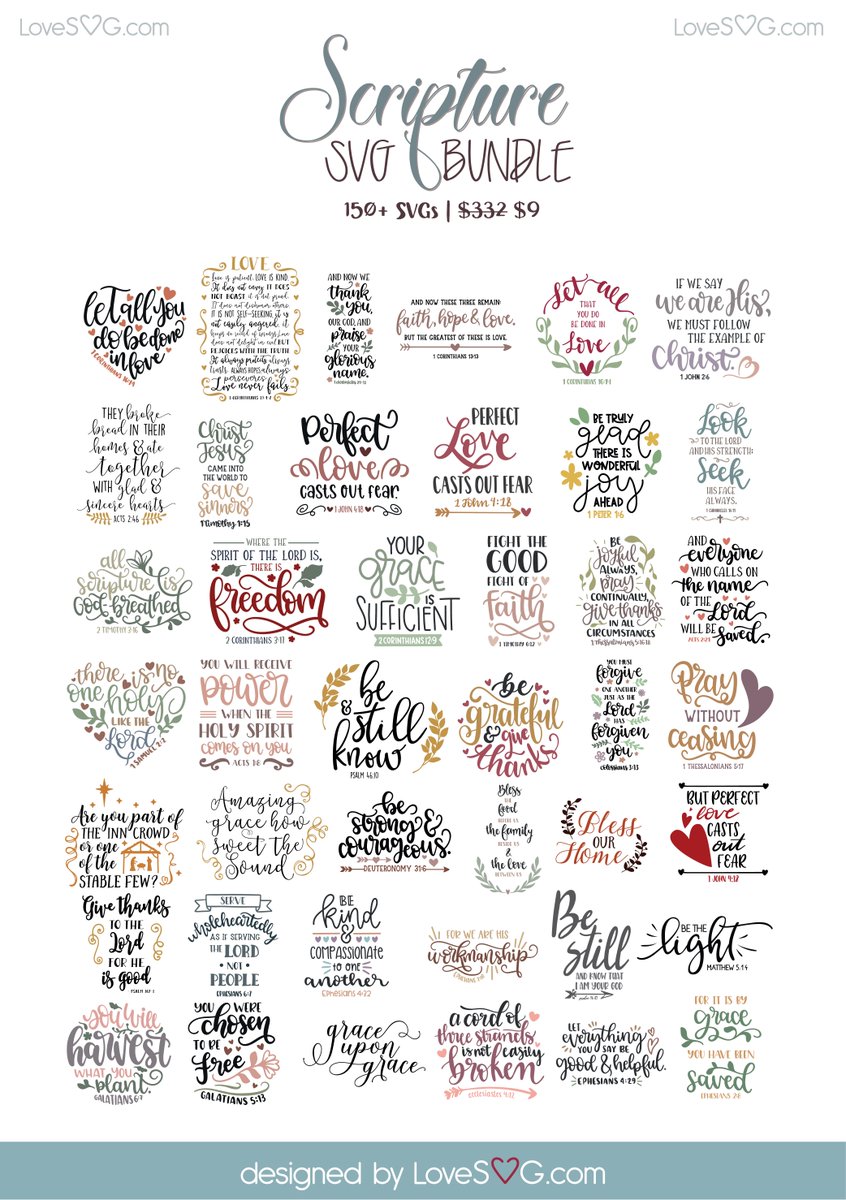 LoveSVG.com
LoveSVG.com
Scripture
SVG BUNDLE
150+ SVGs | $332 $9
let all you
do be done
in love
1 CORINTHIANS 16:14
LOVE
love is patient, LOVE IS KIND.
It does not envy, IT DOES
NOT BOAST, it is not proud.
It does not dishonor others,
IT IS NOT SELF-SEEKING, it is
not easily angered, it
keeps no record of wrongs. Love
does not delight in evil BUT
REJOICES WITH THE TRUTH.
It always protects, always
trusts, ALWAYS HOPES, always
perseveres.
Love never fails.
1 CORINTHIANS 13:4-8
AND NOW WE
thank
you,
OUR GOD, AND
praise
YOUR
glorious
name.
AND NOW THESE THREE REMAIN:
faith, hope & love.
BUT THE GREATEST OF THESE IS LOVE.
1 CORINTHIANS 13:13
Let all
THAT
YOU DO
BE DONE IN
Love
1 CORINTHIANS 16:14
IF WE SAY
we are His,
WE MUST FOLLOW
THE EXAMPLE OF
Christ.
1 JOHN 2:6
THEY broke
bread IN THEIR
homes & ate
together
WITH glad &
sincere hearts
ACTS 2:46
Christ
Jesus
CAME INTO
THE WORLD TO
save
sinners
1 Timothy 1:15
Perfect
love
casts out fear.
1 JOHN 4:18
PERFECT
Love
CASTS OUT FEAR
1 John 4:18
BE TRULY
glad
THERE IS
WONDERFUL
joy
AHEAD
1 PETER 1:6
Look
TO THE LORD
AND HIS STRENGTH;
Seek
HIS FACE
ALWAYS.
1 CHRONICLES 16:11
all
scripture is
God-breathed
2 TIMOTHY 3:16
WHERE THE
SPIRIT OF THE LORD IS,
THERE IS
freedom
2 CORINTHIANS 3:17
YOUR
grace
IS
SUFFICIENT
2 CORINTHIANS 12:9
FIGHT THE
GOOD
FIGHT OF
faith
1 TIMOTHY 6:12
BE
joyful
ALWAYS,
pray
CONTINUALLY,
give thanks
IN ALL
CIRCUMSTANCES
1 Thessalonians 5:16-18
AND
everyone
WHO CALLS ON
the name
OF THE
Lord
WILL BE
saved.
ACTS 2:21
there is no
one holy
LIKE THE
Lord
1 SAMUEL 2:2
YOU WILL RECEIVE
power
WHEN THE
HOLY SPIRIT
comes on you
ACTS 1:8
be
& still
know
PSALM 46:10
be
grateful
& give
thanks
YOU MUST
forgive
ONE ANOTHER
JUST AS THE
Lord
HAS
forgiven
you
colossians 3:13
Pray
WITHOUT
ceasing
1 THESSALONIANS 5:17
Are you part of
THE INN CROWD
or one
OF THE
STABLE FEW?
Amazing
grace how
Sweet the
Sound
be
strong &
courageous.
DEUTERONOMY 31:6
Bless
the
food
BEFORE US
the family
BESIDE US
&
the love
BETWEEN US
Bless
OUR
Home
BUT PERFECT
love
CASTS
out
FEAR
1 JOHN 4:18
Give thanks
TO THE
Lord
FOR HE
is good
PSALM 107:1
SERVE
wholeheartedly
AS IF SERVING
THE LORD
• NOT •
PEOPLE
EPHESIANS 6:7
BE
kind
&
COMPASSIONATE
to one
another
Ephesians 4:32
FOR WE ARE HIS
workmanship
EPHESIANS 2:10
Be
Still
AND KNOW THAT
I AM YOUR GOD
psalm 46:10
BE THE
light
MATTHEW 5:14
you will
harvest
WHAT YOU
plant.
GALATIANS 6:7
YOU WERE
chosen
TO BE
free
GALATIANS 5:13
grace
upon
grace
a cord of
three strands
is not easily
broken
ecclesiastes 4:12
LET
everything
YOU SAY BE
good & helpful.
EPHESIANS 4:29
FOR IT IS BY
grace
YOU HAVE BEEN
saved
EPHESIANS 2:8
designed by LoveSVG.com